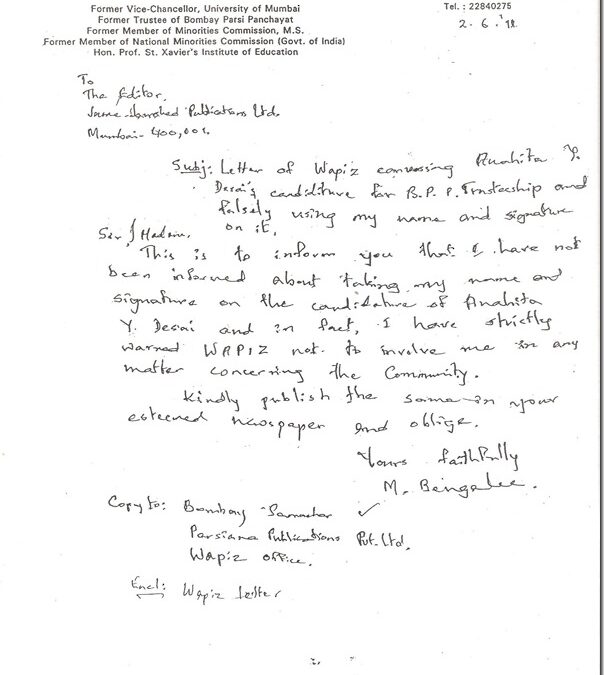 Former Vice-Chancellor, University of Mumbai
Former Trustee of Bombay Parsi Panchayat
Former Member of Minorities Commission, M.S.
Former Member of National Minorities Commission (Govt. of India)
Hon. Prof. St. Xavier's Institute of Education
Tel. : 22840275
2. 6. '11
To
The Editor,
Jame-Jamshed Publications Ltd.
Mumbai - 400,001.
Subj: Letter of Wapiz canvassing Anahita Y.
Desai's canditure for B.P.P. Trusteeship and
falsely using my name and signature
on it.
Sir / Madam,
This is to inform you that I have not
been informed about taking my name and
signature on the candidature of Anahita
Y. Desai and in fact, I have strictly
warned WAPIZ not to involve me in any
matter concerning the Community.
Kindly publish the same in your
esteened newspaper and oblige.
Yours faithfully
M. Bengalee.
Copy to: Bombay Samachar ✓
Parsiana Publications Pvt. Ltd.
Wapiz office.
Encl: Wapiz letter